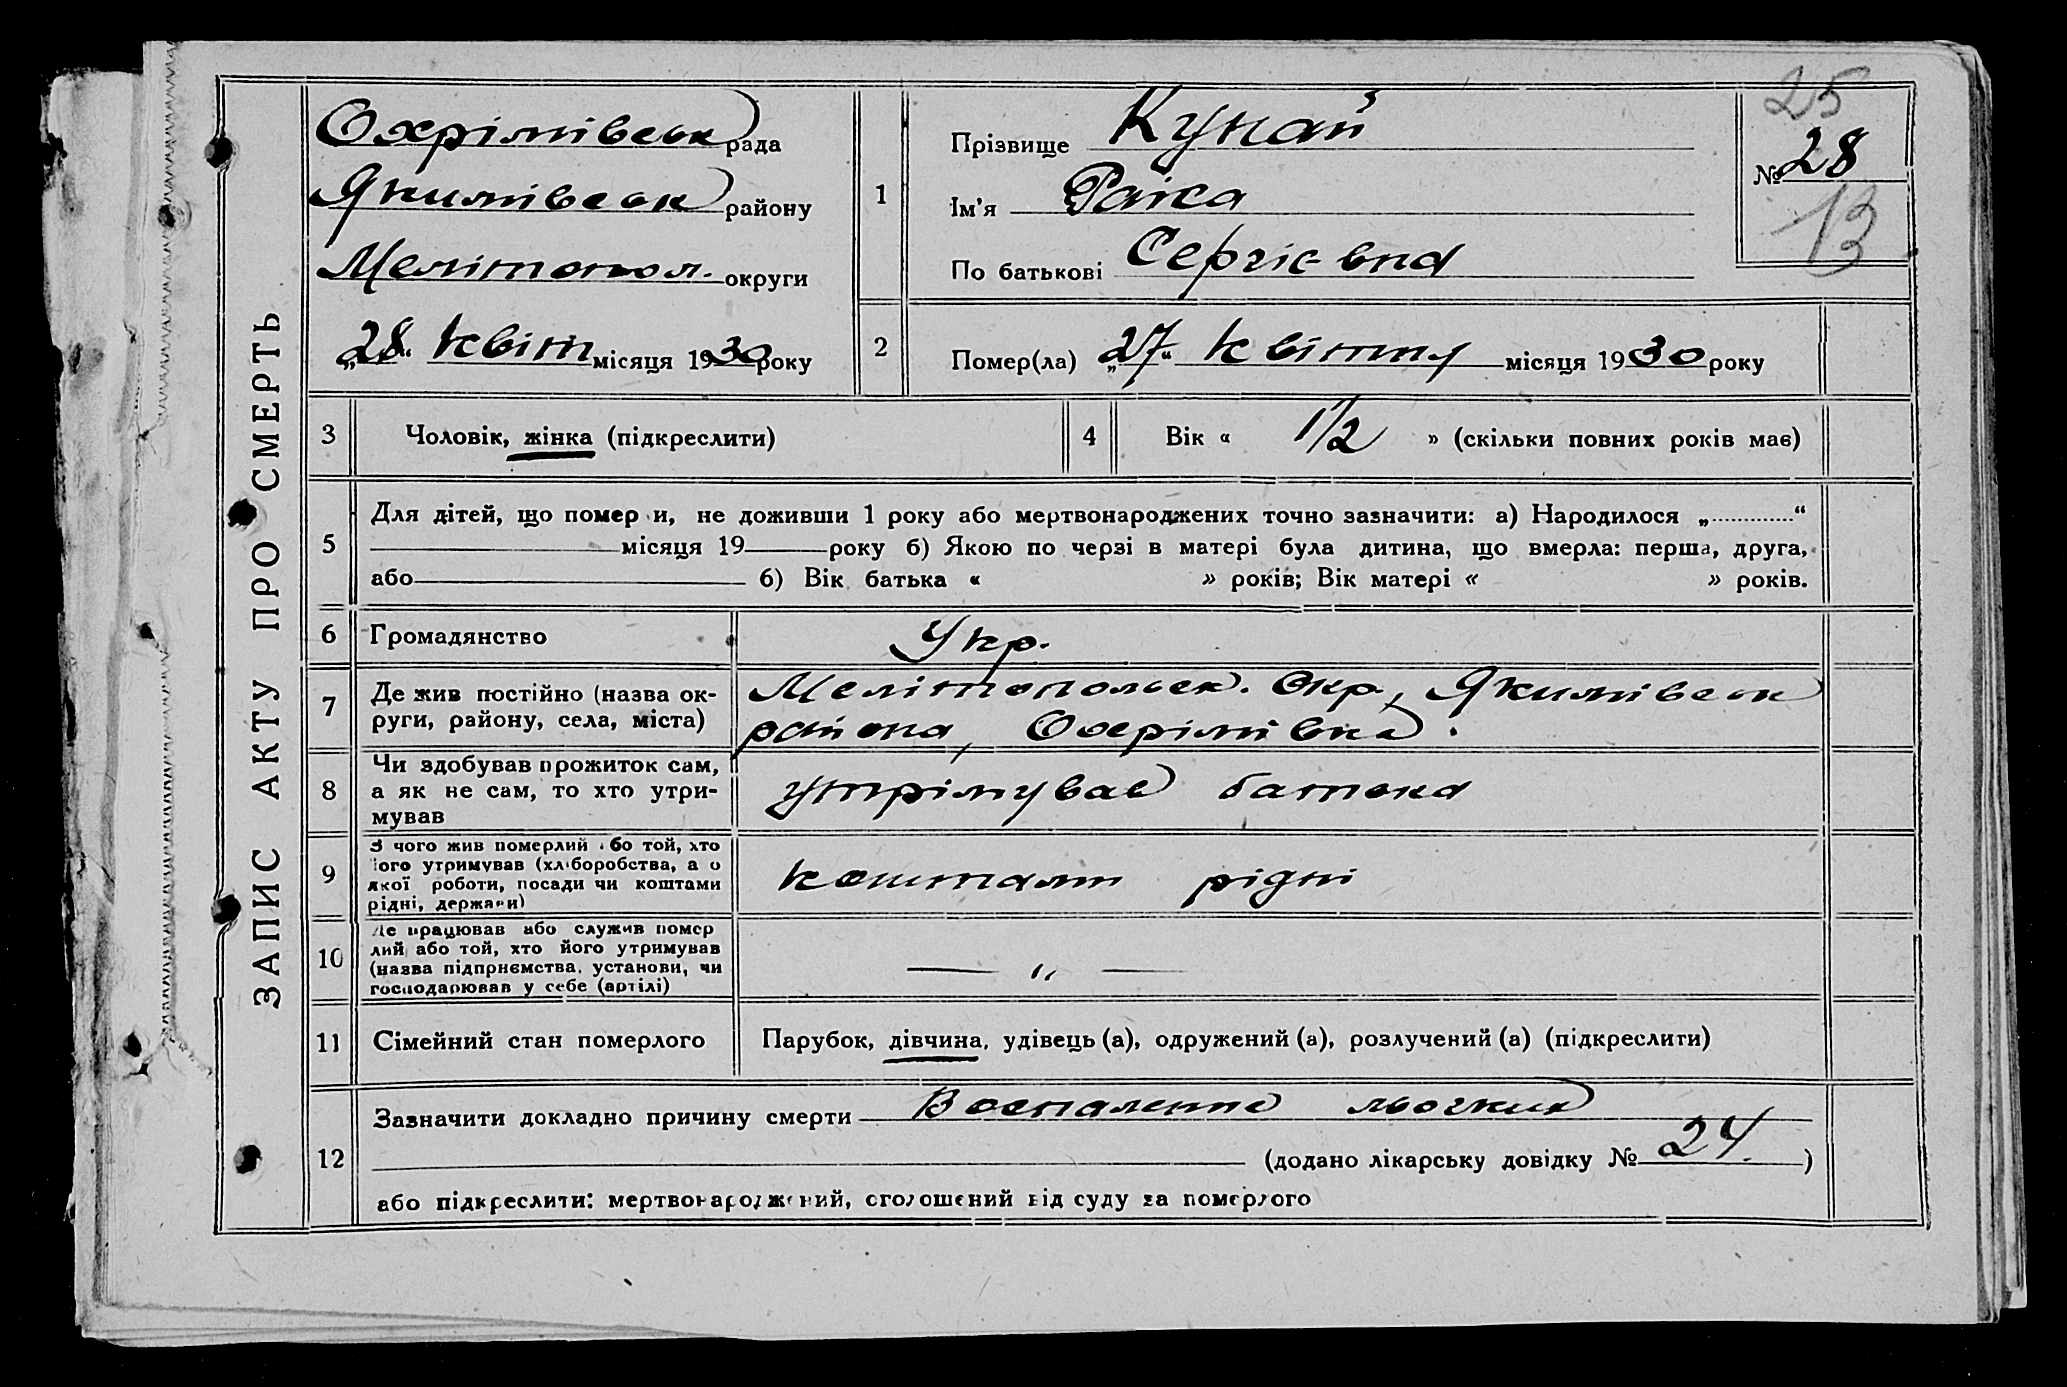 ЗАПИС АКТУ ПРО СМЕРТЬ
Охрімівськ рада
Якимівськ району
Мелітопол. округи
„28“ квітн місяця 1930 року
1
Прізвище Кунай
Ім'я Раіса
По батькові Сергієвна
25
№ 28
13
2
Помер(ла) „27“ квітня місяця 1930 року
3 Чоловік, жінка (підкреслити)
4 Вік « 1½ » (скільки повних років має)
5
Для дітей, що помер и, не доживши 1 року або мертвонароджених точно зазначити: а) Народилося „............“
місяця 19 року б) Якою по черзі в матері була дитина, що вмерла: перша, друга,
або б) Вік батька « » років; Вік матері « » років.
6 Громадянство Укр.
7
Де жив постійно (назва ок-
руги, району, села, міста)
Мелітопольськ. Окр., Якимівськ
района, Охрімівка.
8
Чи здобував прожиток сам,
а як не сам, то хто утри-
мував
утрімував батька
9
З чого жив померлий або той, хто
його утримував (хліборобства, а о
якої роботи, посади чи коштами
рідні, держави)
коштами рідні
10
Де працював або служив помер
лий або той, хто його утримував
(назва підприємства, установи, чи
господарював у себе (артілі)
— „ —
11 Сімейний стан померлого
Парубок, дівчина, удівець (а), одружений (а), розлучений (а) (підкреслити)
12
Зазначити докладно причину смерти Воспаление льогких
(додано лікарську довідку № 24. )
або підкреслити: мертвонароджений, оголошений від суду за померлого